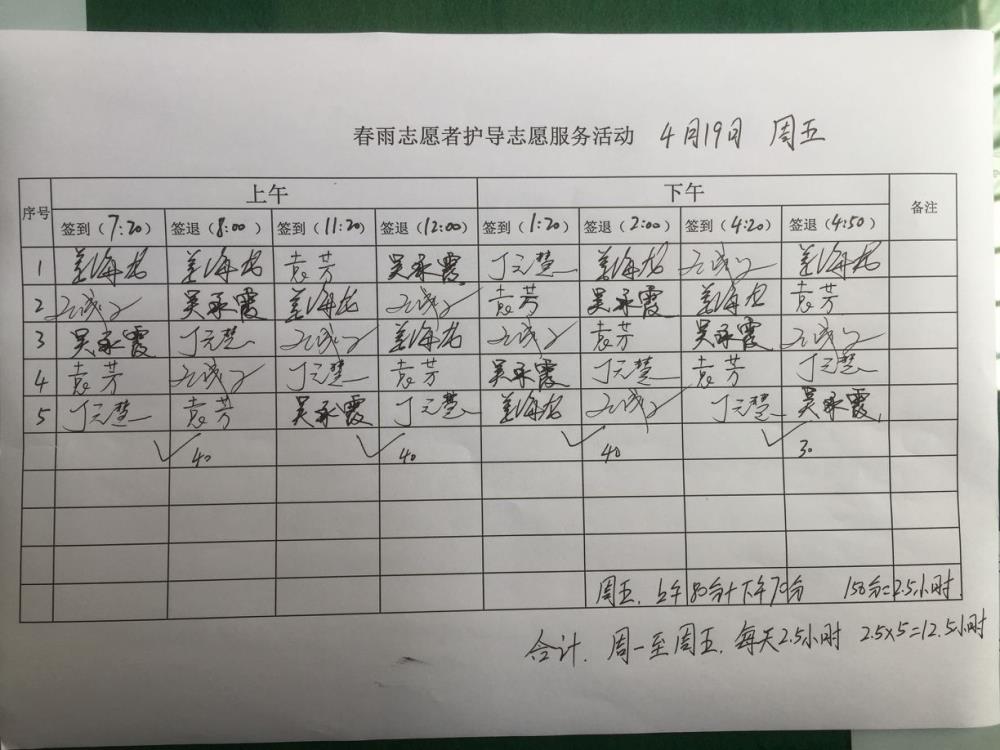 春雨志愿者护导志愿服务活动 4月19日 周五
序号 上午 下午 备注
签到(7:20) 签退(8:00) 签到(11:20) 签退(12:00) 签到(1:20) 签退(2:00) 签到(4:20) 签退(4:50)
1 袁芳 吴承霞 丁元慧
2 吴承霞 袁芳 吴承霞 袁芳
3 吴承霞 丁元慧 袁芳 吴承霞
4 袁芳 丁元慧 袁芳 吴承霞 丁元慧 袁芳 丁元慧
5 丁元慧 袁芳 吴承霞 丁元慧 丁元慧 吴承霞
✓40 ✓40 ✓40 ✓30
周五.上午80分+下午70分 150分=2.5小时
合计.周一至周五.每天2.5小时 2.5×5=12.5小时